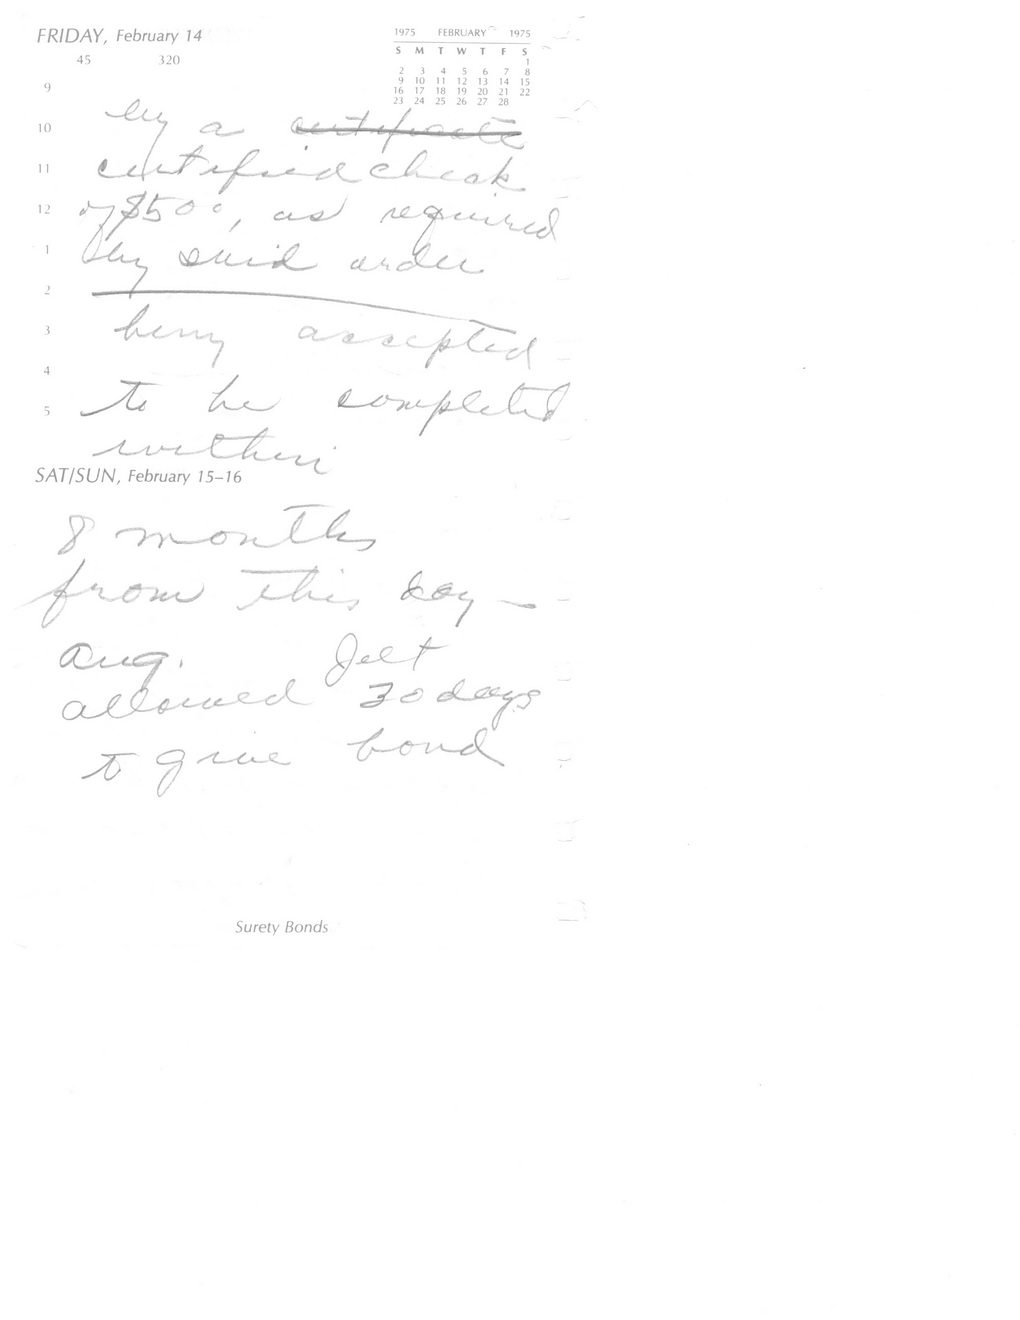 FRIDAY, February 14
45 320
1975 FEBRUARY 1975
S M T W T F S
1
2 3 4 5 6 7 8
9 10 11 12 13 14 15
16 17 18 19 20 21 22
23 24 25 26 27 28
9
10 by a certificate
11 certified check
12 of $500, as required
1 by said order
2
3 being accepted
4
5 to be completed
within
SAT/SUN, February 15–16
8 months
from this day —
Aug. Jelt
allowed 30 days
to give bond
Surety Bonds